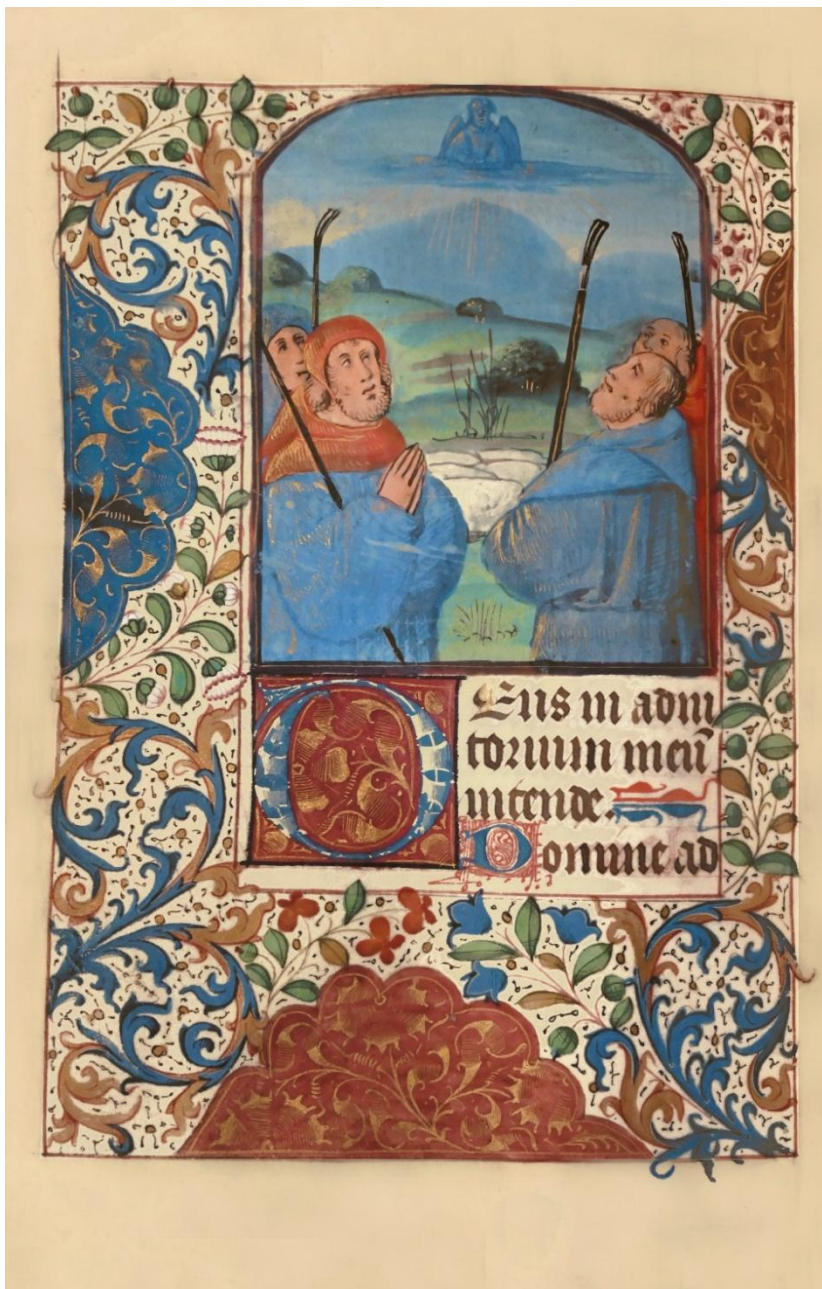 Deus in adiu
toriuum meū
intende.
Domine ad